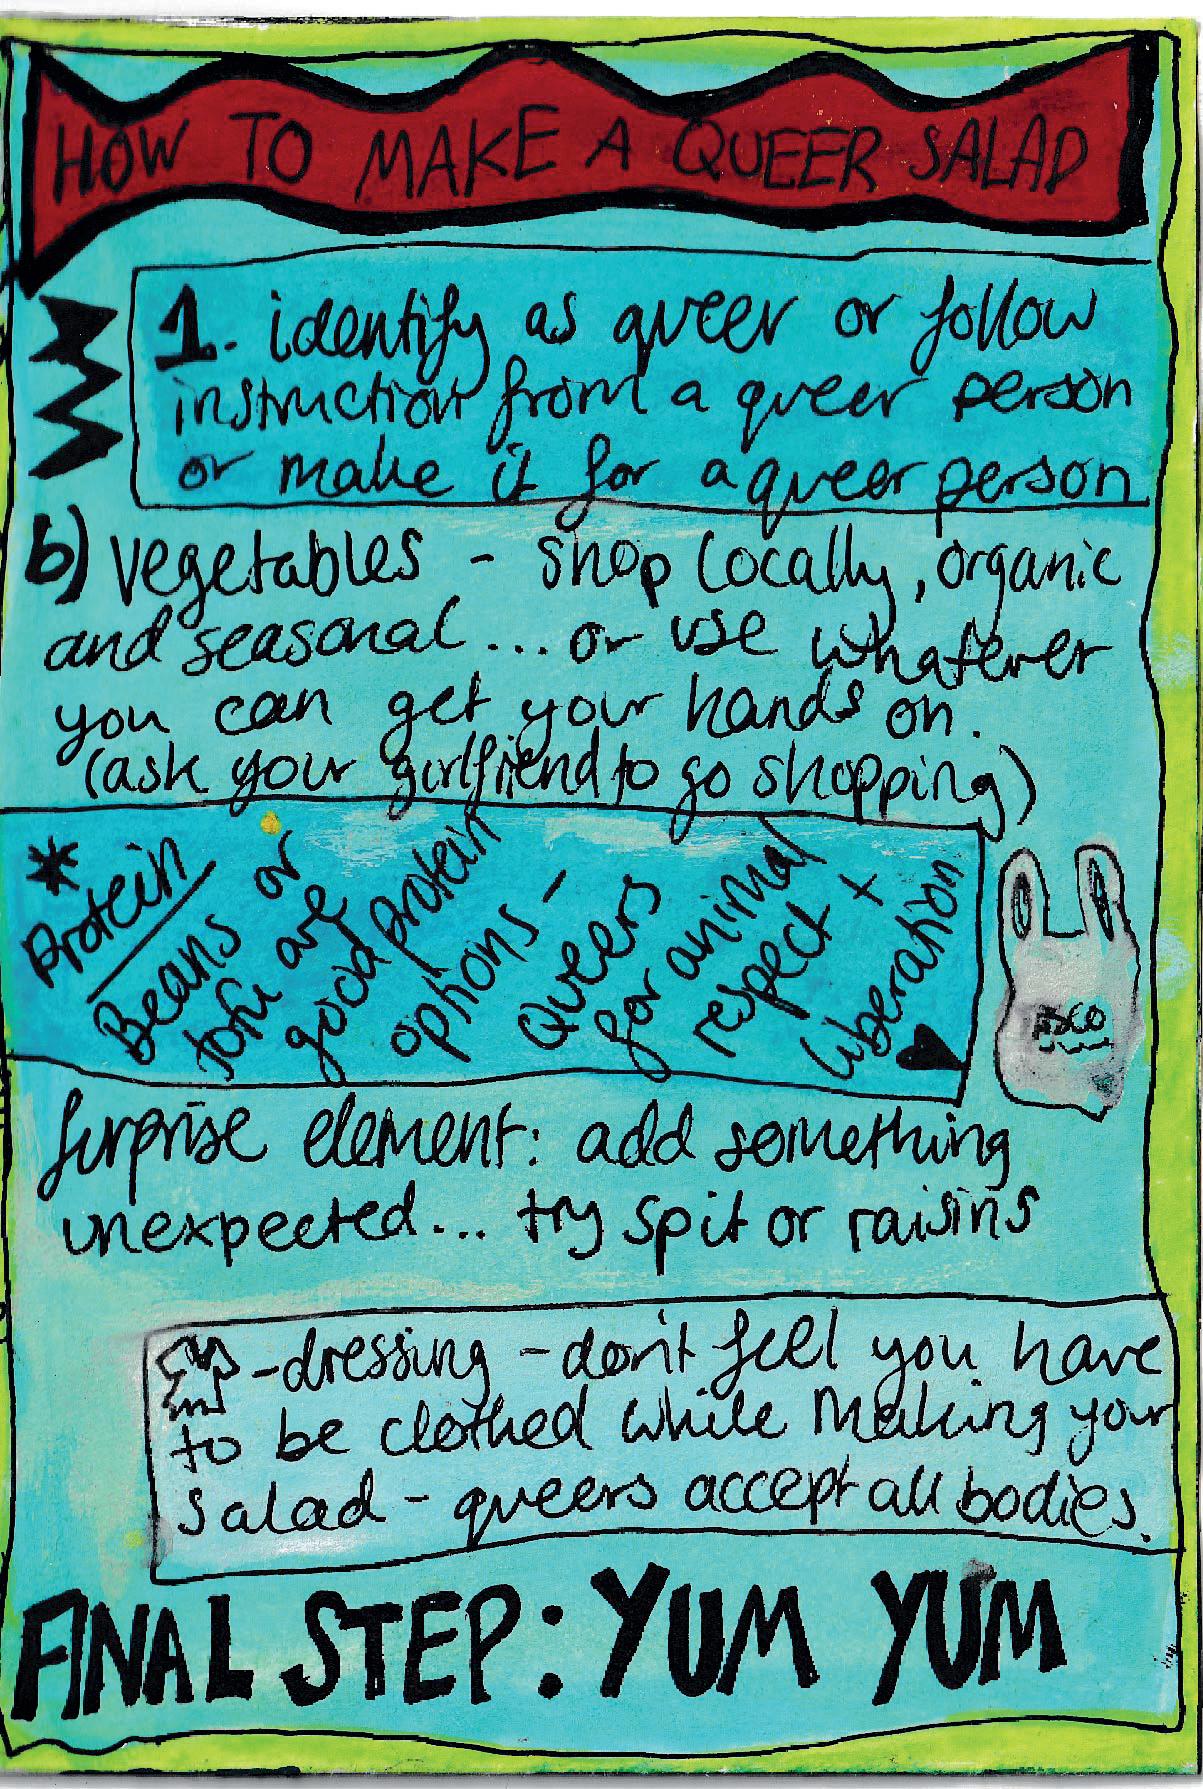 HOW TO MAKE A QUEER SALAD
1. identify as queer or follow
instruction from a queer person
or make it for a queer person
b) vegetables - shop locally, organic
and seasonal... or use whatever
you can get your hands on.
(ask your girlfriend to go shopping)
* Protein
Beans or
tofu are
good protein
options -
Queers
for animal
respect +
liberation
Surprise element: add something
unexpected... try spit or raisins
-dressing - don't feel you have
to be clothed while making your
salad - queers accept all bodies.
FINAL STEP: YUM YUM